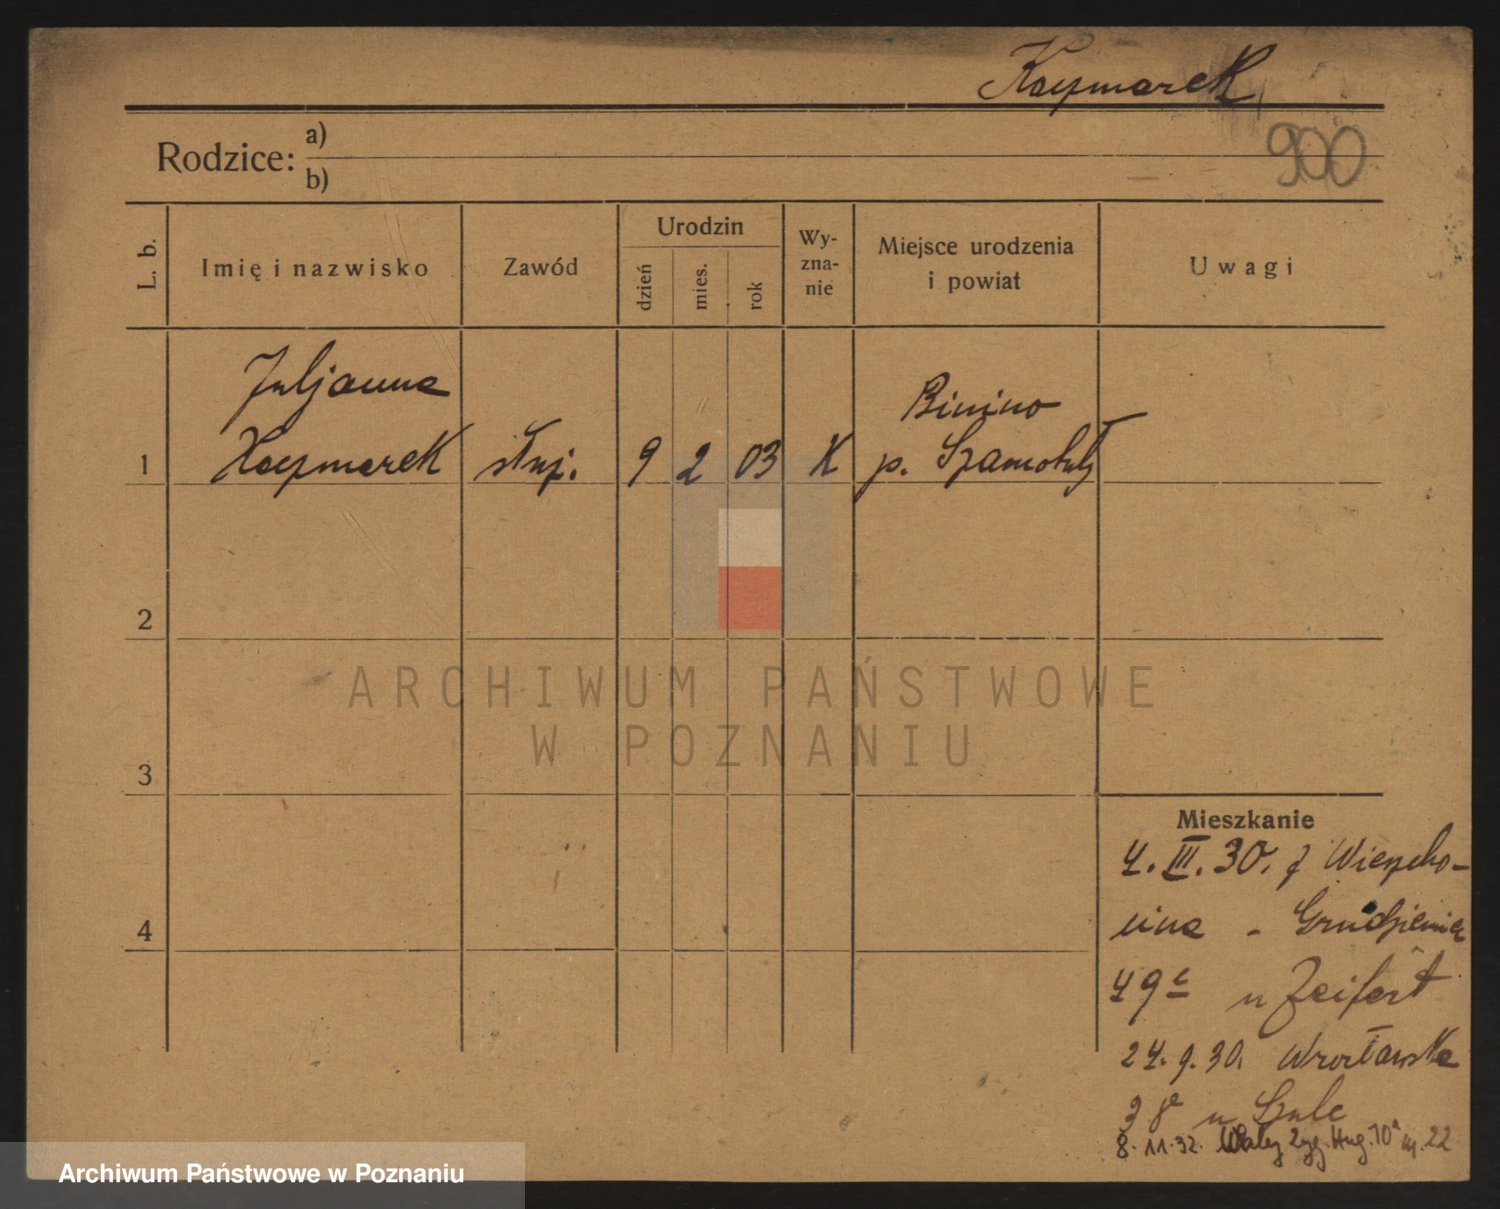 Kaczmarek
900
Rodzice: a)
b)
L. b. Imię i nazwisko Zawód Urodzin dzień mies. rok Wyzna-nie Miejsce urodzenia i powiat Uwagi
Juljanna Binino
1 Kaczmarek służ. 9 2 03 K p. Szamotuły
2
3
4
ARCHIWUM PAŃSTWOWE
W POZNANIU
Mieszkanie
4. III. 30. z Wierzcho-
cina - Grudzieniec
49 c u Zeifert
24. 9. 30. Wrocławska
38 u Szulc
8. 11. 32. Wały Zyg. Aug. 10a m. 22
Archiwum Państwowe w Poznaniu